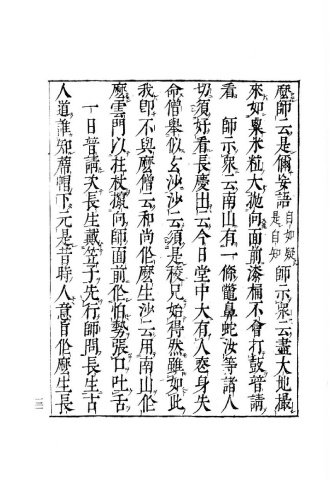 麼師云是儞妄語自如疑是自知師示衆云盡大地撮
來如粟米粒大抛向面前漆桶不會打鼓普請
看　師示衆云南山有一條鼈鼻蛇汝等諸人
切須好看長慶出云今日堂中大有人喪身失
命僧舉似玄沙沙云須是稜兄始得然雖如此
我卽不與麼僧云和尚作麼生沙云用南山作
麼雲門以柱杖攛向師面前作怕勢張口吐舌
一日普請次長生戴笠子先行師問長生古
人道誰知蓆帽下元是昔時人意旨作麼生長